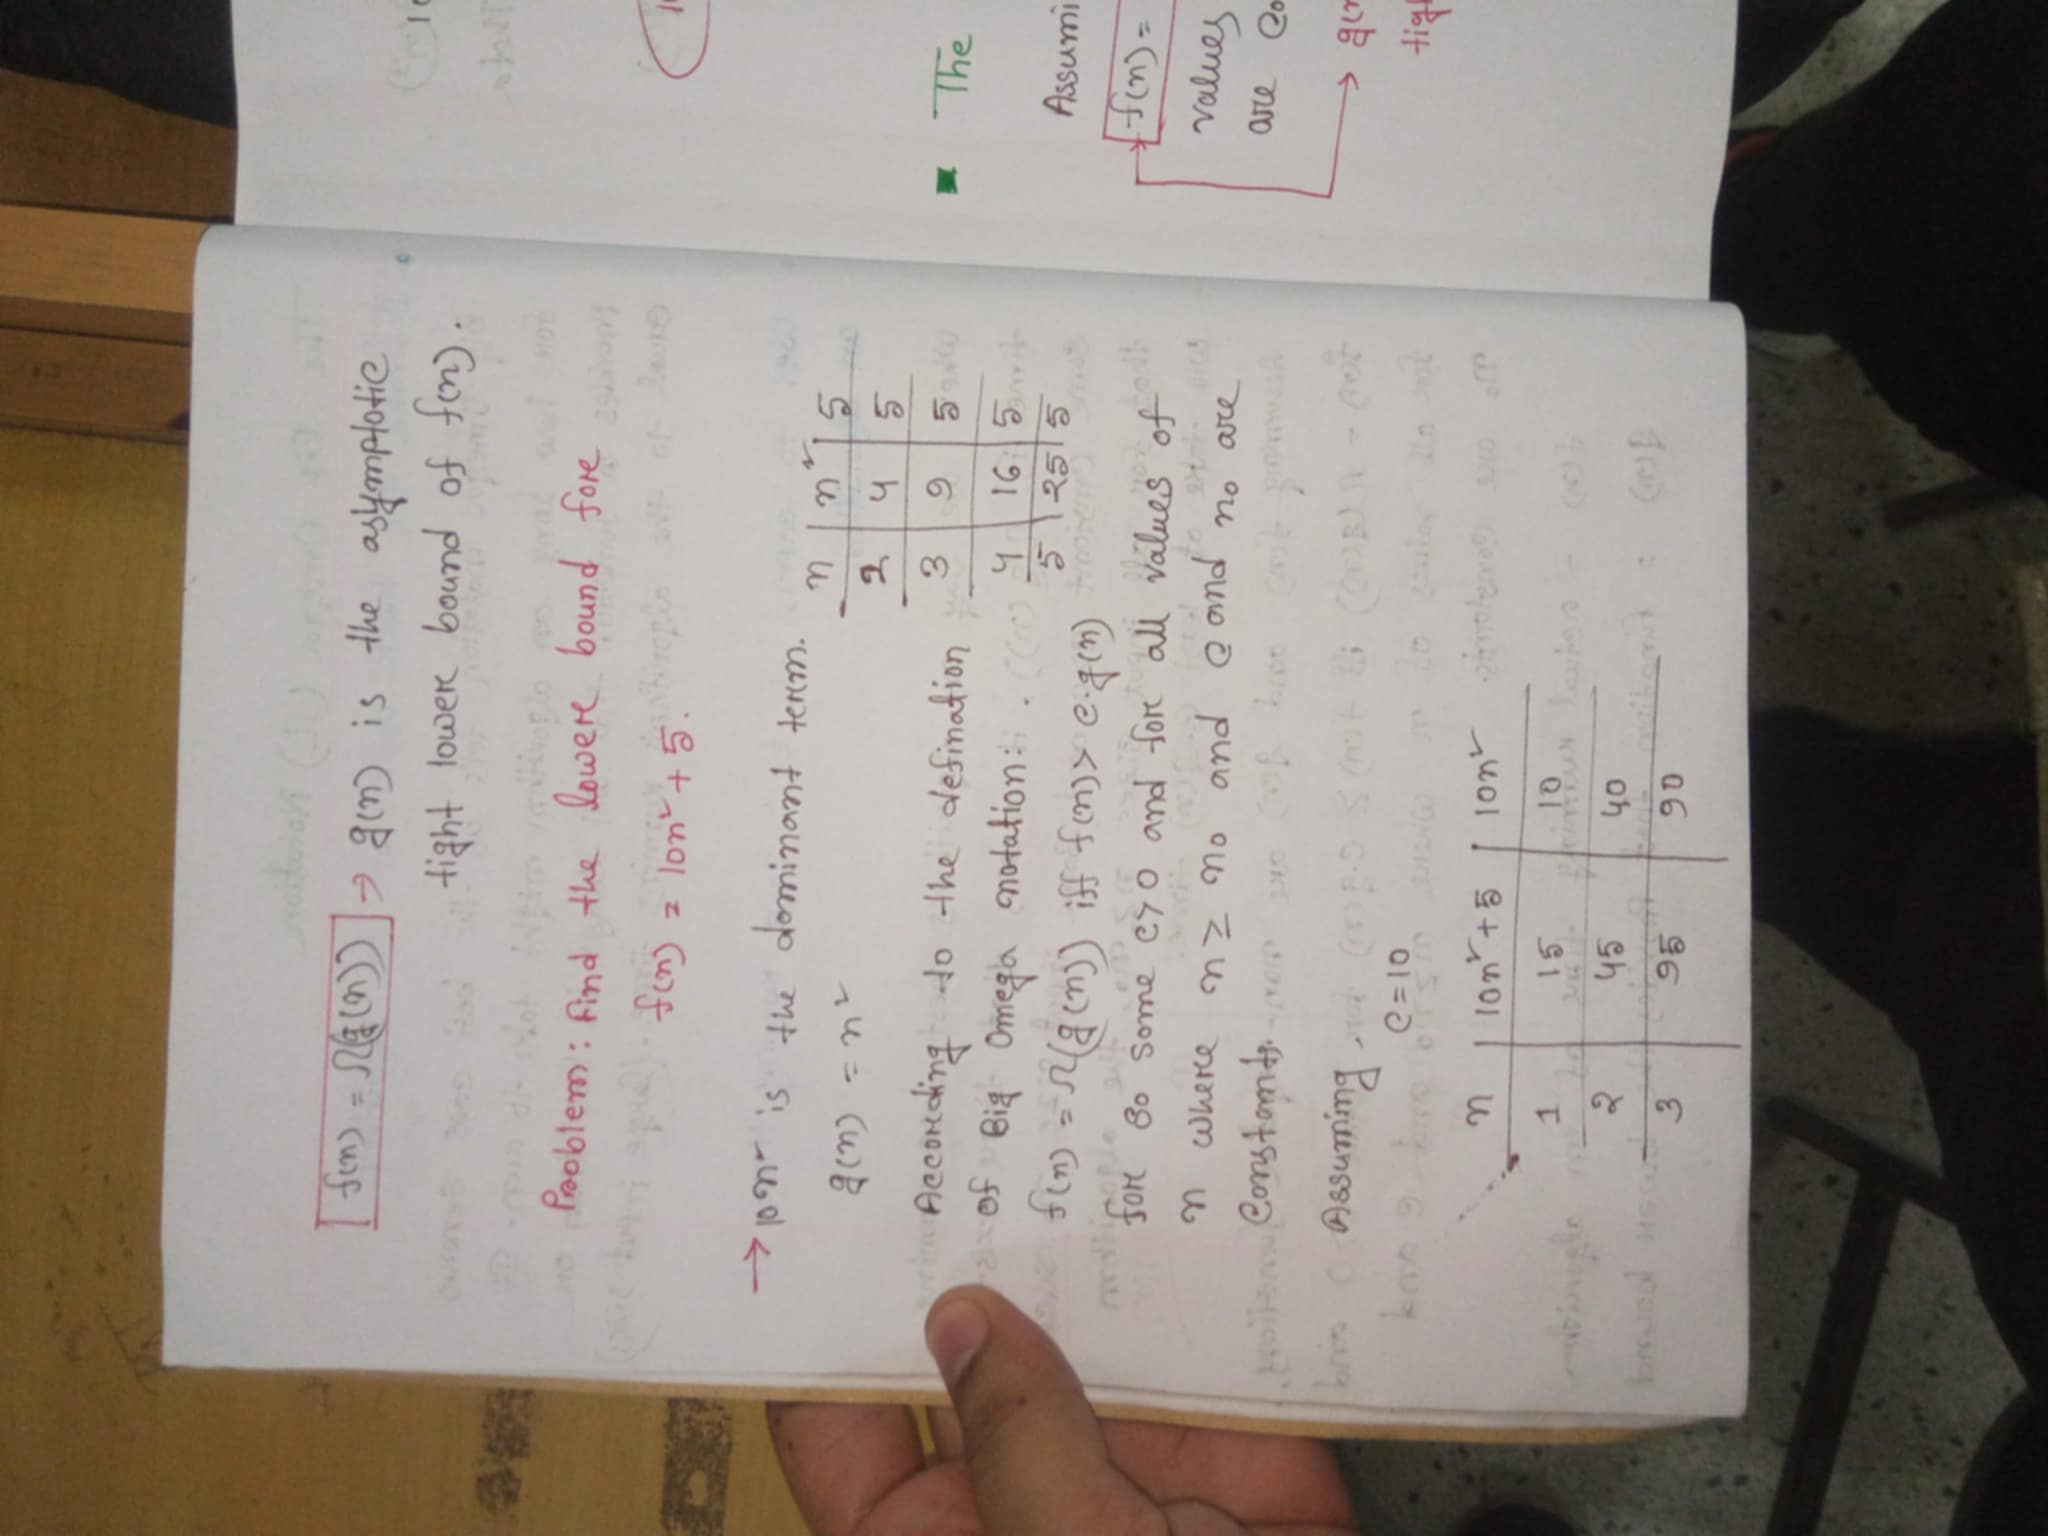 f(n) = Ω(g(n)) → g(n) is the asymptotic
tight lower bound of f(n).
Problem: Find the lower bound for
f(n) = 10n² + 5.
→ 10n² is the dominant term.
g(n) = n²
n | n² | 5
2 | 4 | 5
3 | 9 | 5
4 | 16 | 5
5 | 25 | 5
According to the defination
of Big Omega notation:
f(n) = Ω(g(n)) iff f(n) > c.g(n)
for so some c>0 and for all values of
n where n ≥ no and c and no are
Constants.
Assuming,
c=10
n | 10n²+5 | 10n²
1 | 15 | 10
2 | 45 | 40
3 | 95 | 90
The
Assumi
f(n) =
values
are co
g(n
tigh